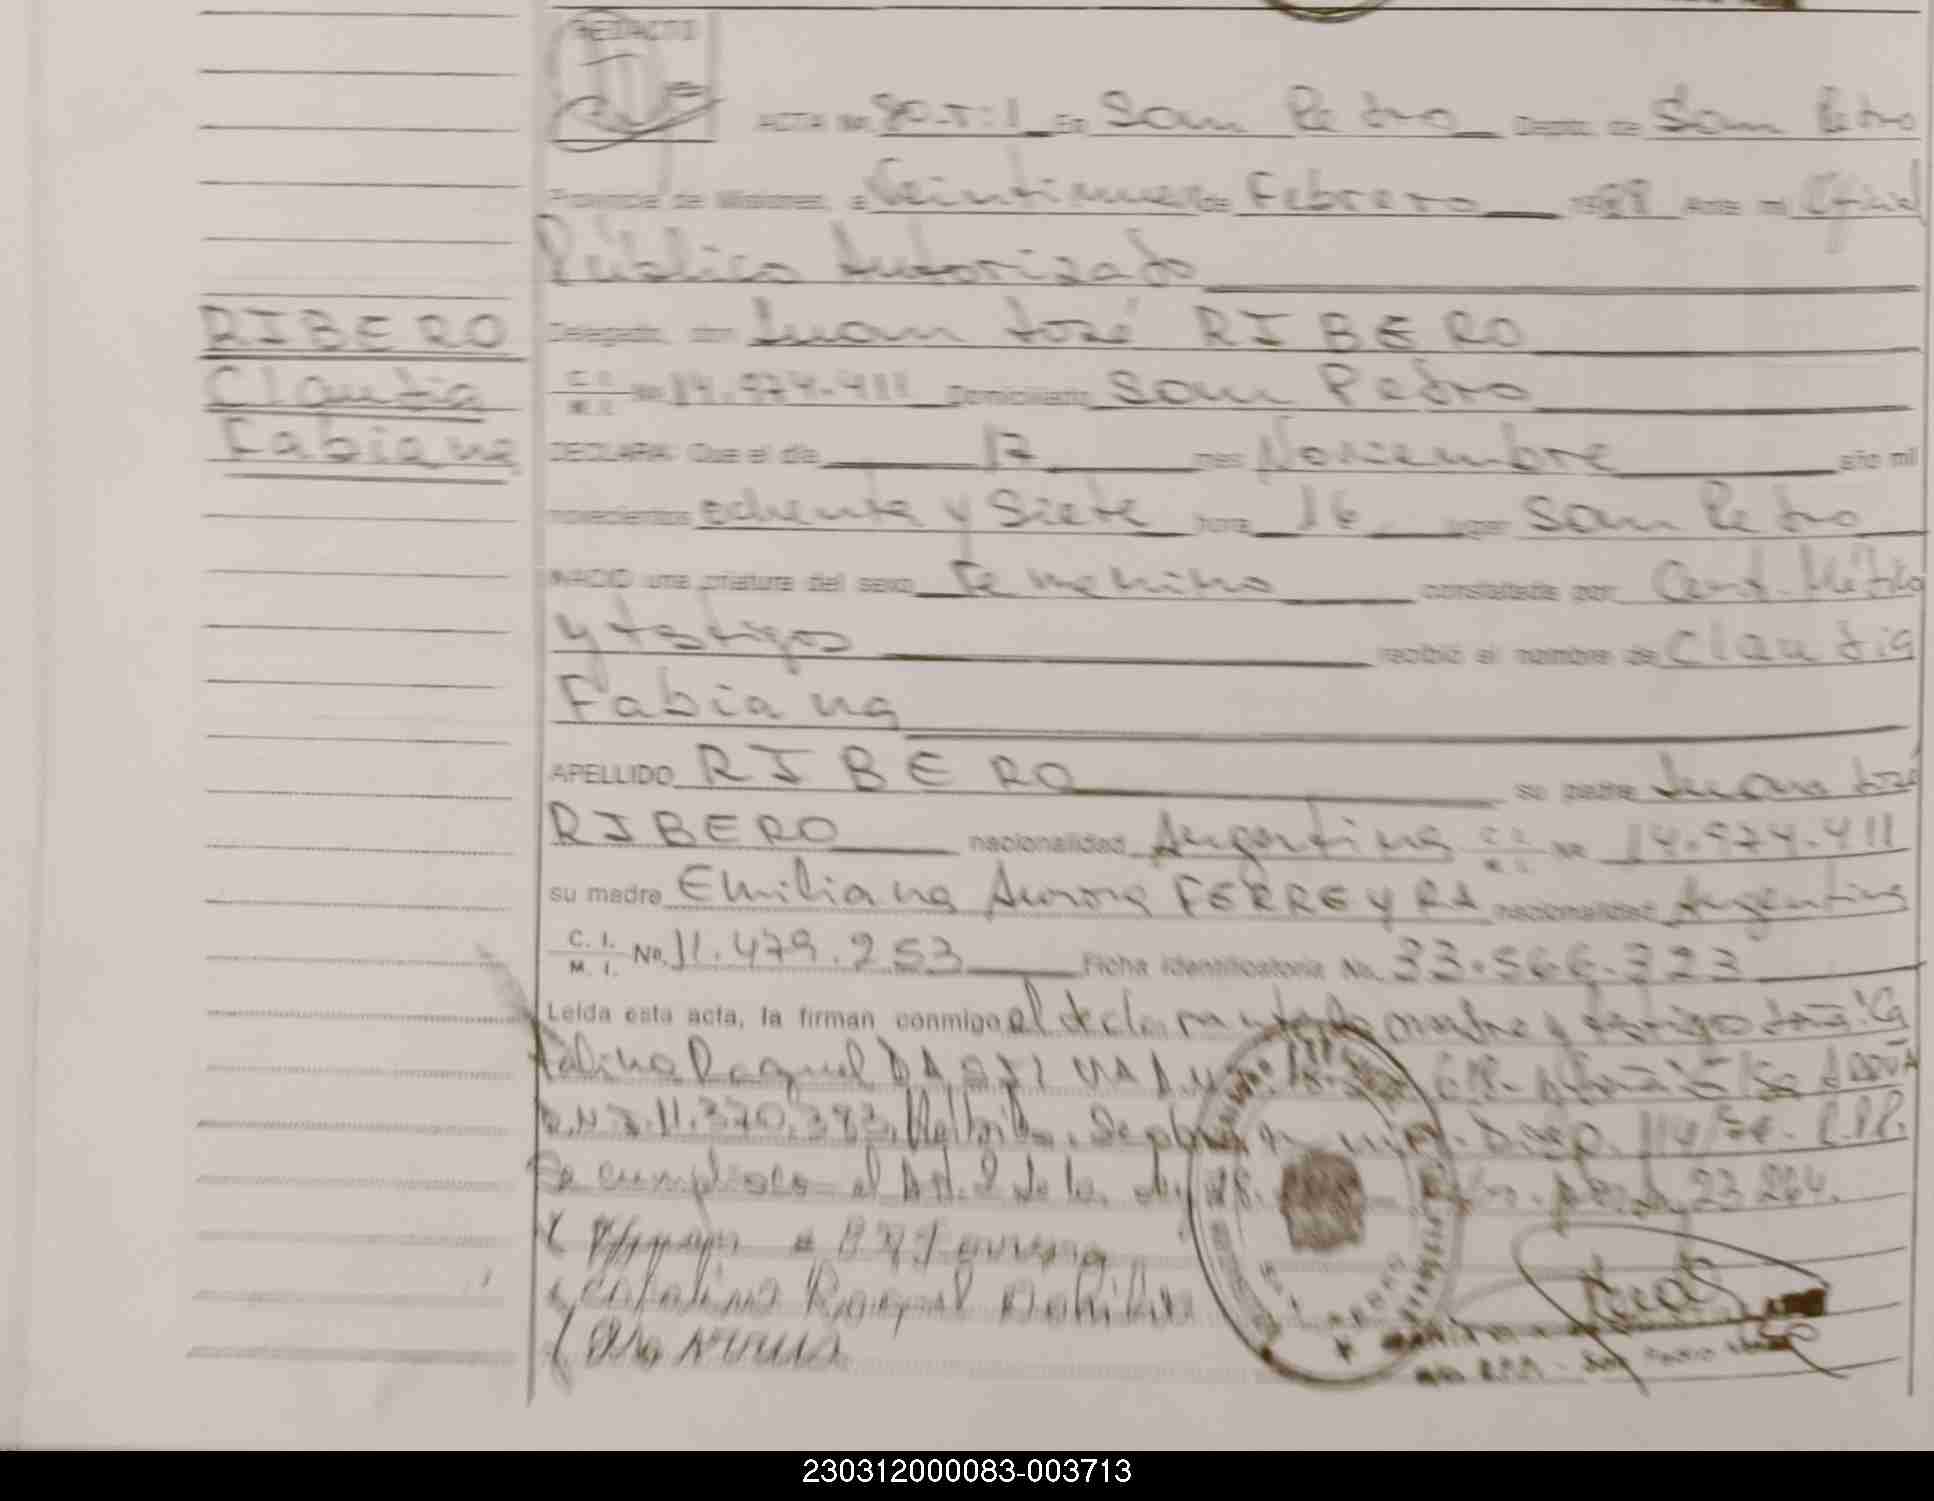 REDACTO
ACTA No. 90.T:I En San Pedro Depto. de San Pedro
Provincia de Misiones, a Veintinueve de Febrero 1988 Ante mi Oficial
Público Autorizado
RIBERO
Claudia
Fabiana
Delegado, don Juan José RIBERO
C. I. M. I. No. 14.974.411 Domiciliado San Pedro
DECLARA: Que el día 17 mes Noviembre año mil
novecientos ochenta y siete hora 16 lugar San Pedro
NACIO una criatura del sexo Femenino constatada por Cert. Médico
y testigos recibió el nombre de Claudia
Fabiana
APELLIDO RIBERO su padre Juan José
RIBERO nacionalidad Argentina C. I. M. I. No. 14.974.411
su madre Emiliana Aurora FERREYRA nacionalidad Argentina
C. I. M. I. No. 11.479.253 Ficha Identificatoria No. 33.566.323
Leída esta acta, la firman conmigo el declarante la madre y testigo doña
Raquel
D.N.I. 11.370.383. Disp. 114/
Se cumplioco el Art. 2 de la 23.264.
Catalina Raquel
San Pedro
230312000083-003713